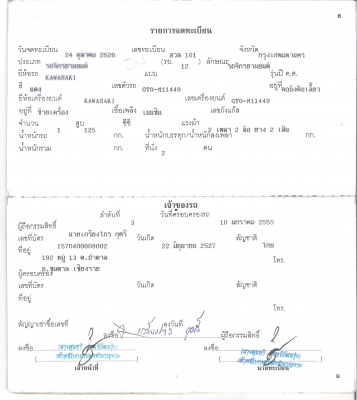 8
รายการจดทะเบียน
วันจดทะเบียน 24 ตุลาคม 2526 เลขทะเบียน 101 จังหวัด กรุงเทพมหานคร
ประเภท รถจักรยานยนต์ (รย. 12 ) ลักษณะ รถจักรยานยนต์
ยี่ห้อรถ KAWASAKI แบบ รุ่นปี ค.ศ.
สี แดง เลขตัวรถ GTO-M11449 อยู่ที่
ยี่ห้อเครื่องยนต์ KAWASAKI เลขเครื่องยนต์ GTO-M11449
อยู่ที่ ซ้ายเครื่อง เชื้อเพลิง เบนซิน เลขถังแก๊ส
จำนวน 1 สูบ 125 ซีซี แรงม้า 2 เพลา 2 ล้อ ยาง 2 เส้น
น้ำหนักรถ กก. น้ำหนักบรรทุก/น้ำหนักลงเพลา กก.
น้ำหนักรวม กก. ที่นั่ง 2 คน
เจ้าของรถ
ลำดับที่ 3 วันที่ครอบครองรถ 10 มกราคม 2555
ผู้ถือกรรมสิทธิ์ นายเกรียงไกร
เลขที่บัตร 1570400008002 วันเกิด 22 มิถุนายน 2527 สัญชาติ ไทย
ที่อยู่ 192 หมู่ 13 ต.ป่าตาล โทร.
อ.ขุนตาล เชียงราย
ผู้ครอบครอง
เลขที่บัตร วันเกิด สัญชาติ
ที่อยู่ โทร.
สัญญาเช่าซื้อเลขที่ ลงวันที่ ผู้ถือกรรมสิทธิ์
ลงชื่อ ลงชื่อ ลงชื่อ
เจ้าหน้าที่ นายทะเบียน
8